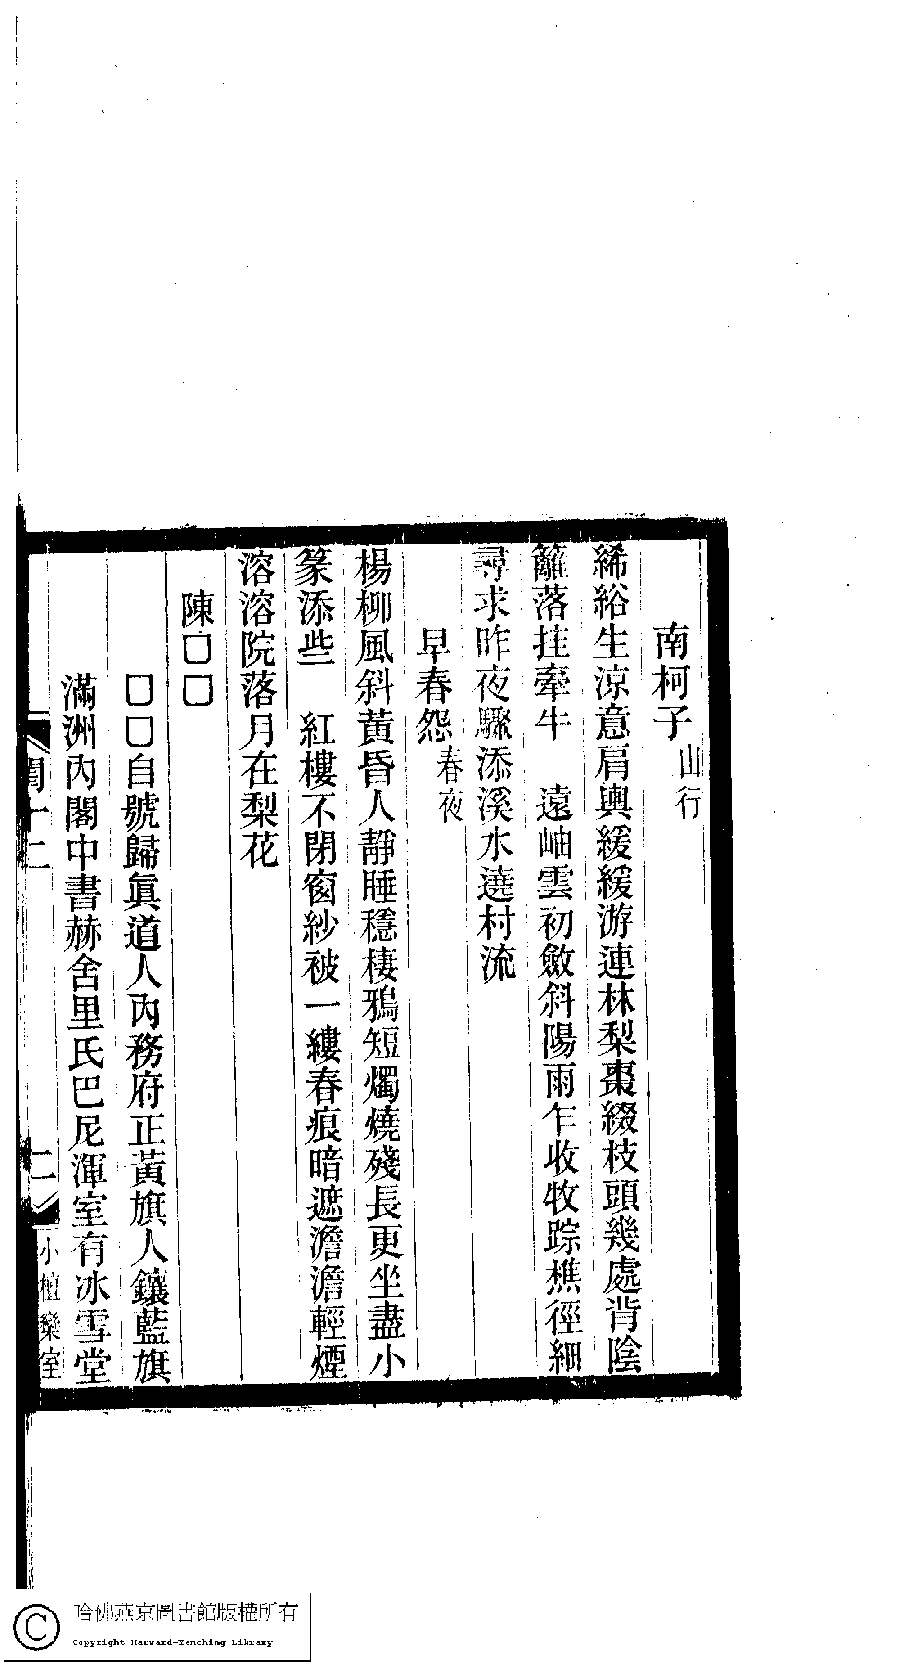 南柯子山行
絺綌生涼意肩輿緩緩游連林梨棗綴枝頭幾處背陰
籬落挂牽牛　遠岫雲初斂斜陽雨乍收牧踪樵徑細
尋求昨夜驟添溪水遶村流
早春怨春夜
楊柳風斜黃昏人靜睡穩棲鴉短燭燒殘長更坐盡小
篆添些　紅樓不閉窗紗被一縷春痕暗遮澹澹輕煙
溶溶院落月在梨花
陳囗囗
囗囗自號歸眞道人內務府正黃旗人鑲藍旗
滿洲內閣中書赫舍里氏巴尼渾室有冰雪堂
閨十二
二
小檀欒室
哈佛燕京圖書館版權所有
Copyright Harvard-Yenching Library